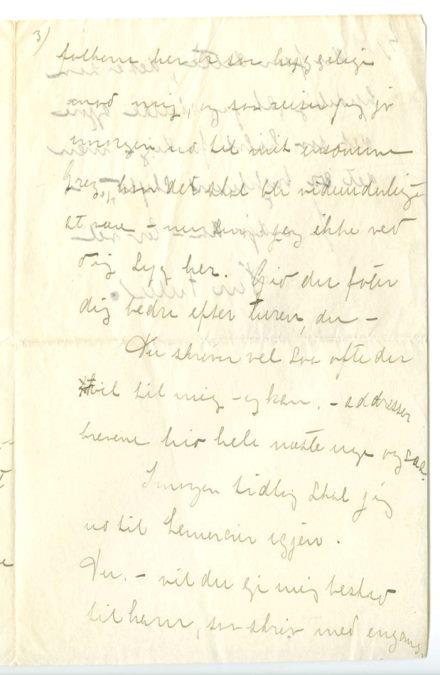 3)
folkene her er saa hyggelige
mod mig, og saa reiser jeg jo
imorgen ud til mit ensomme
Grez, hvor det skal bli vidunderligt
at være – men jeg ikke ved
dig Lyg her. Gid du føler
dig bedre efter turen, du –
Du skriver vel saa ofte du
vil til mig – og kan. – addresser
brevene hid hele næste uge og saa.
Imorgen tidlig skal jeg
ud til Lemercier igjen.
Du. – vil du gi mig besked
til ham, saa skriv med engang.